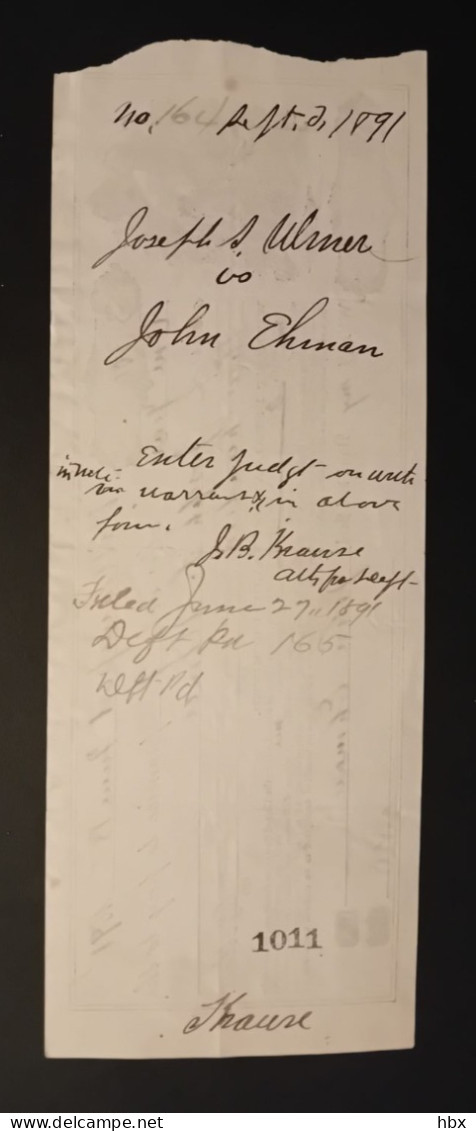 No. 164 Sept. T, 1891
Joseph S. Ulmer
vs
John Ehman
Enter judgt on
warrant in above
form.
J. B. Krause
Atty for Deft
Filed June 27, 1891
Deft Pd 165
Deft Pd
1011
Krause
hbx